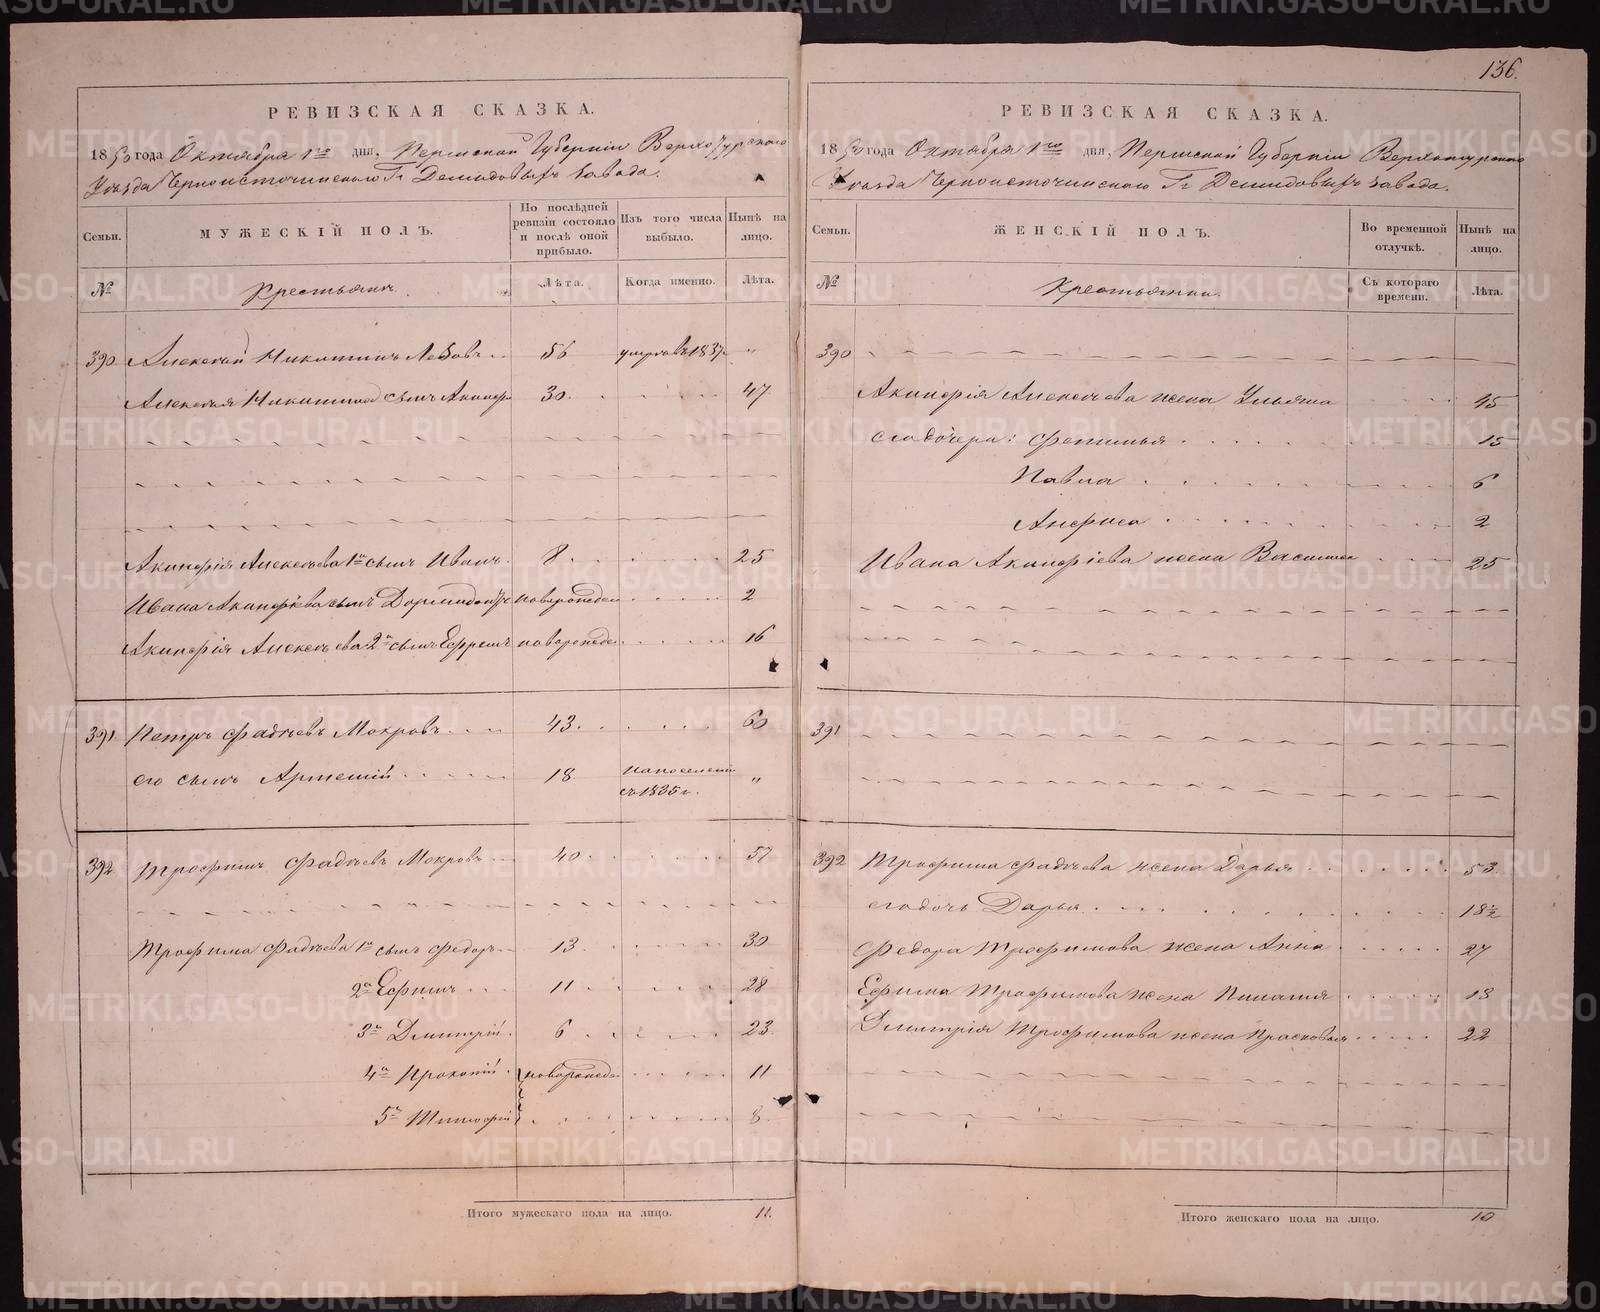 136.
РЕВИЗСКАЯ СКАЗКА.
1850 года Октября 1го дня, Пермской Губерніи Верхотурскаго
Уѣзда Черноисточинскаго Гг Демидовыхъ завода.
Семьи.
МУЖЕСКІЙ ПОЛЪ.
По послѣдней ревизіи состояло и послѣ оной прибыло.
Изъ того числа выбыло.
Нынѣ на лицо.
№
Крестьянъ
Лѣта.
Когда именно.
Лѣта.
390. Алексѣй Никитинъ 56 умеръ въ 1837 "
Алексѣя Никитина сынъ Акинфій 30 47
Акинфія Алексѣева 1й сынъ Иванъ 8 25
Ивана Акинфіева сынъ Дормидонтъ новорожден 2
Акинфія Алексѣева 2й сынъ Ефремъ новорожде 16
391. Петръ Фадѣевъ Мокровъ 43 60
его сынъ Артемій 18 на поселеніи съ 1835 г. "
392 Трофимъ Фадѣевъ Мокровъ 40 57
Трофима Фадѣева 1й сынъ Федоръ 13 30
2й Ефимъ 11 28
3й Дмитрій 6 23
4й Прокопій новорожде 11
5й Тимофей 8
Итого мужескаго пола на лицо. 11.
РЕВИЗСКАЯ СКАЗКА.
1850 года Октября 1го дня, Пермской Губерніи Верхотурскаго
Уѣзда Черноисточинскаго Гг Демидовыхъ завода.
Семьи.
ЖЕНСКІЙ ПОЛЪ.
Во временной отлучкѣ.
Нынѣ на лицо.
№
Крестьянки
Съ котораго времени.
Лѣта.
390
Акинфія Алексѣева жена Ульяна 45
его дочери: Фетинья 15
Павла 6
Анфиса 2
Ивана Акинфіева жена Василиса 25
391
392 Трофима Фадѣева жена Дарья 53
его дочь Дарья 18½
Федора Трофимова жена Анна 27
Ефима Трофимова жена Пилагія 18
Дмитрія Трофимова жена Прасковья 22
Итого женскаго пола на лицо. 10
METRIKI.GASO-URAL.RU